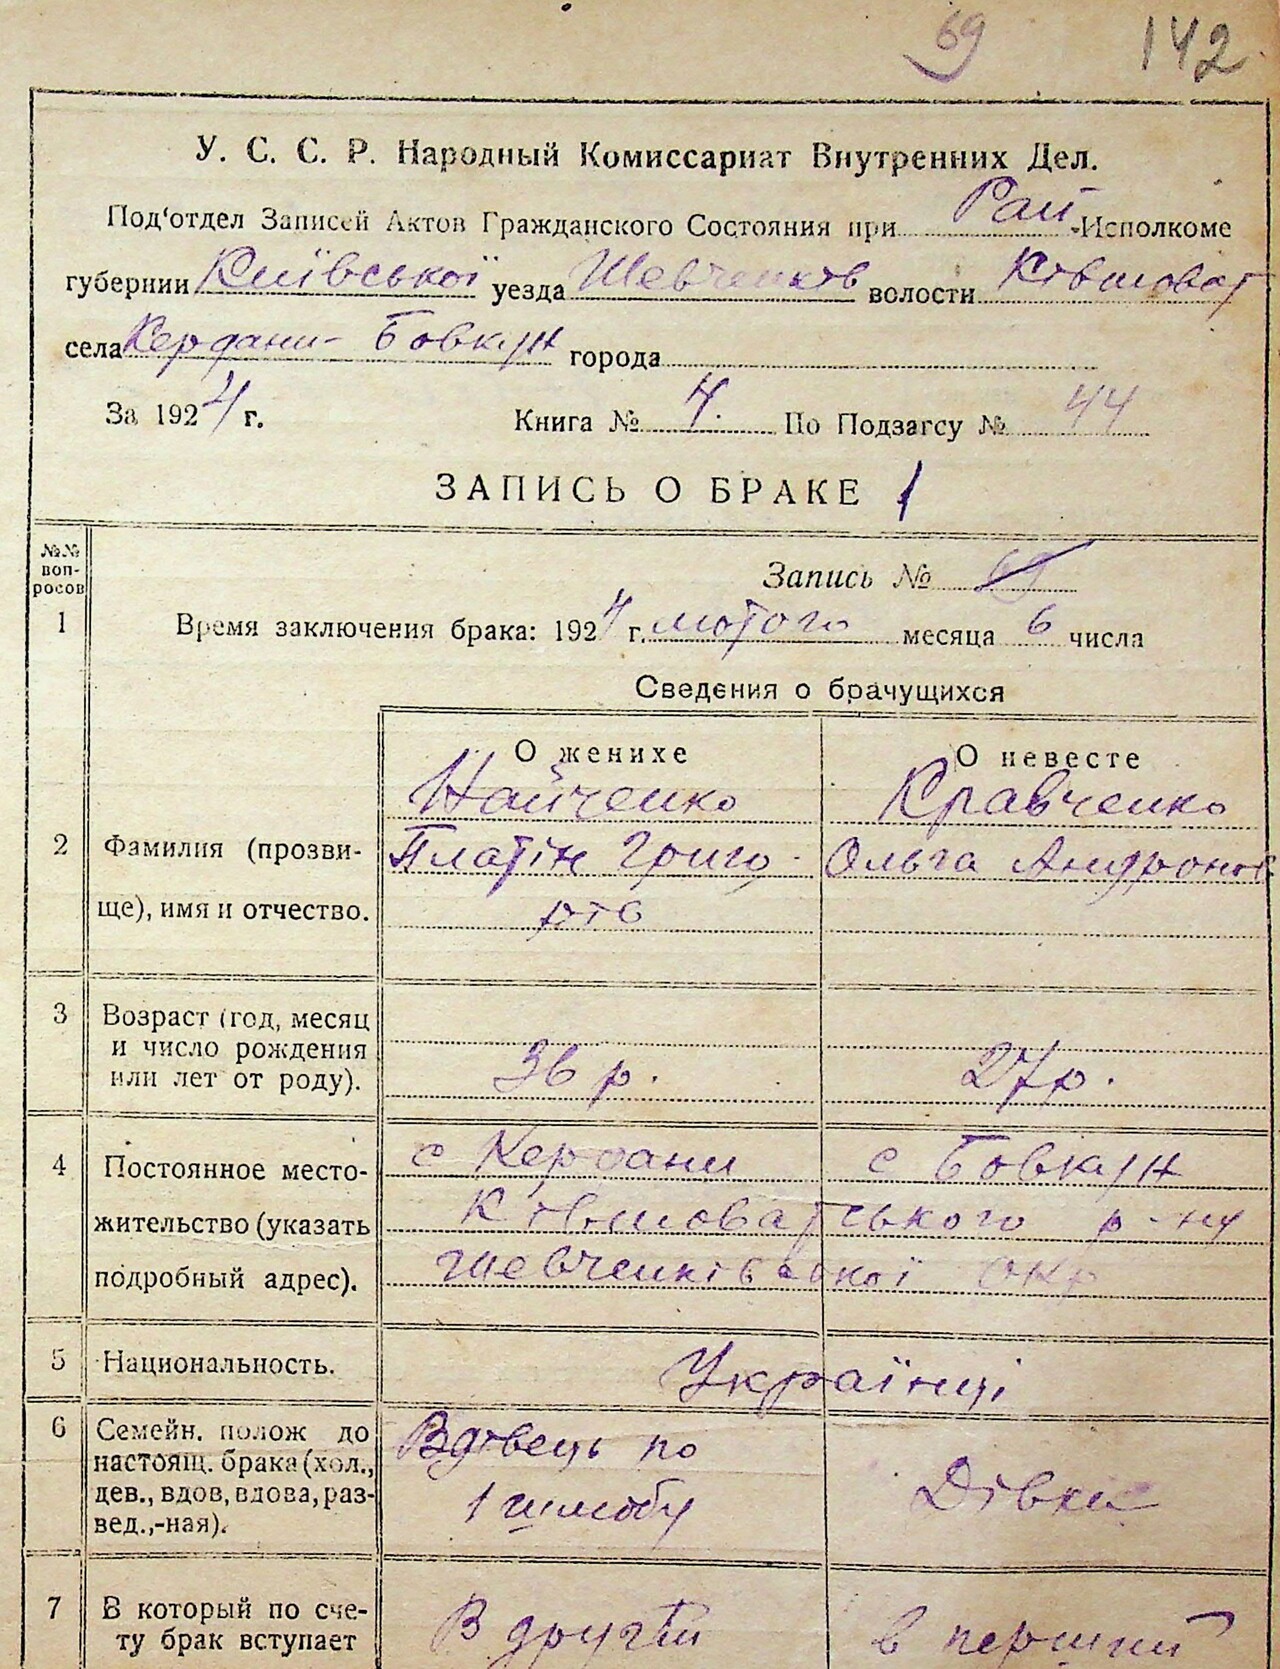 69 142
У. С. С. Р. Народный Комиссариат Внутренних Дел.
Под'отдел Записей Актов Гражданского Состояния при Рай -Исполкоме
губернии Київської уезда Шевченків волости Ківшоват
села Кердани- Бовкун города
За 1924 г. Книга № 4. По Подзагсу № 44
ЗАПИСЬ О БРАКЕ 1
№№ вопросов
Запись № 69
1 Время заключения брака: 1924 г. лютого месяца 6 числа
Сведения о брачущихся
О женихе О невесте
Найченко Кравченко
2 Фамилия (прозви- Платін Григо- Ольга Андронов
ще), имя и отчество. рів
3 Возраст (год, месяц
и число рождения 36 р. 27 р.
или лет от роду).
4 Постоянное место- с Кердани с Бовкун
жительство (указать Ківшоватського р-ну
подробный адрес). Шевченківської окр
5 Национальность. Українці
6 Семейн. полож до Вдівець по
настоящ. брака (хол.,
дев., вдов, вдова, раз- 1 шлюбу Дівка
вед.,-ная).
7 В который по сче- В другій в перший
ту брак вступает